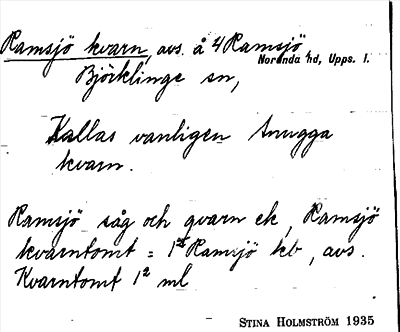 Ramsjö kvarn, avs. å 4 Ramsjö
Norunda hd, Upps. l.
Björklinge sn,
Kallas vanligen Snugga
kvarn.
Ramsjö såg och qvarn ek, Ramsjö
kvarntomt = 1 Ramsjö kb, avs.
Kvarntomt 1² ml
STINA HOLMSTRÖM 1935